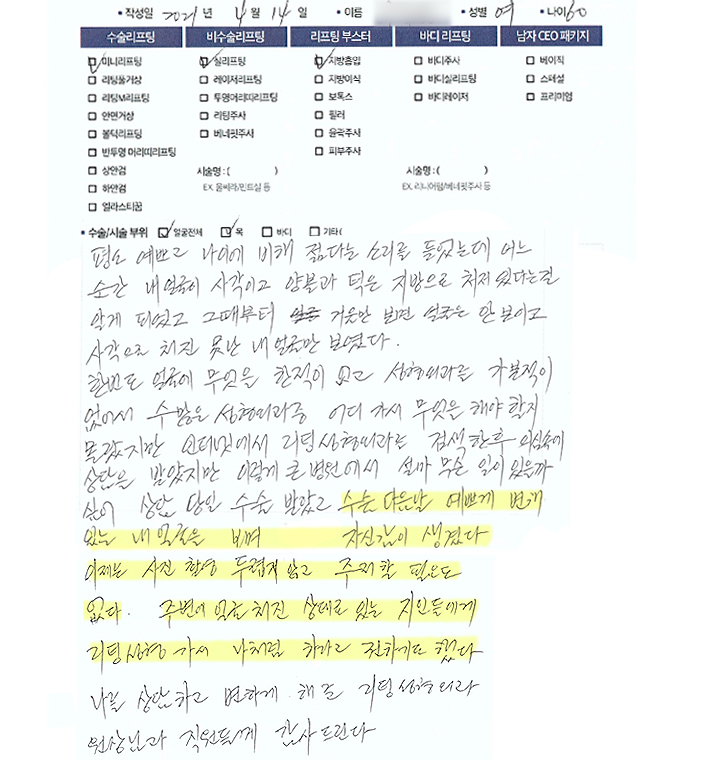 • 작성일 2021 년 4 월 14 일 • 이름 • 성별 여 • 나이 60
수술리프팅 비수술리프팅 리프팅 부스터 바디 리프팅 남자 CEO 패키지
미니리프팅 실리프팅 지방흡입 바디주사 베이직
리팅풀거상 레이저리프팅 지방이식 바디실리프팅 스페셜
리팅M리프팅 투명머리띠리프팅 보톡스 바디레이저 프리미엄
안면거상 리팅주사 필러
볼턱리프팅 베네핏주사 윤곽주사
반투명 머리띠리프팅 피부주사
상안검 시술명 : ( ) 시술명 : ( )
하안검 EX. 울쎄라/민트실 등 EX. 리니어펌/베네핏주사 등
엘라스티꿈
• 수술/시술 부위 얼굴전체 목 바디 기타(
평소 예쁘고 나이에 비해 젊다는 소리를 들었는데 어느
순간 내 얼굴이 사각이고 양볼과 턱은 지방으로 처져 있다는걸
알게 되었고 그때부터 거울만 보면 얼굴은 안 보이고
사각으로 처진 못난 내 얼굴만 보였다.
한번도 얼굴에 무엇을 한적이 없고 성형외과를 가본적이
없어서 수많은 성형외과중 어디 가서 무엇을 해야 할지
몰랐지만 인터넷에서 리팅성형외과는 검색한후 의심속에
상담을 받았지만 이렇게 큰 병원에서 설마 무슨 일이 있을까
싶어 상담 당일 수술 받았고 수술 다음날 예쁘게 변해
있는 내 얼굴을 보며 자신감이 생겼다
이제는 사진 촬영 두렵지 않고 주저할 필요도
없다. 주변에 얼굴 처진 상태로 있는 지인들에게
리팅성형 가서 나처럼 하라고 전하기도 했다
나를 상담하고 변하게 해준 리팅성형외과
원장님과 직원들께 감사드린다